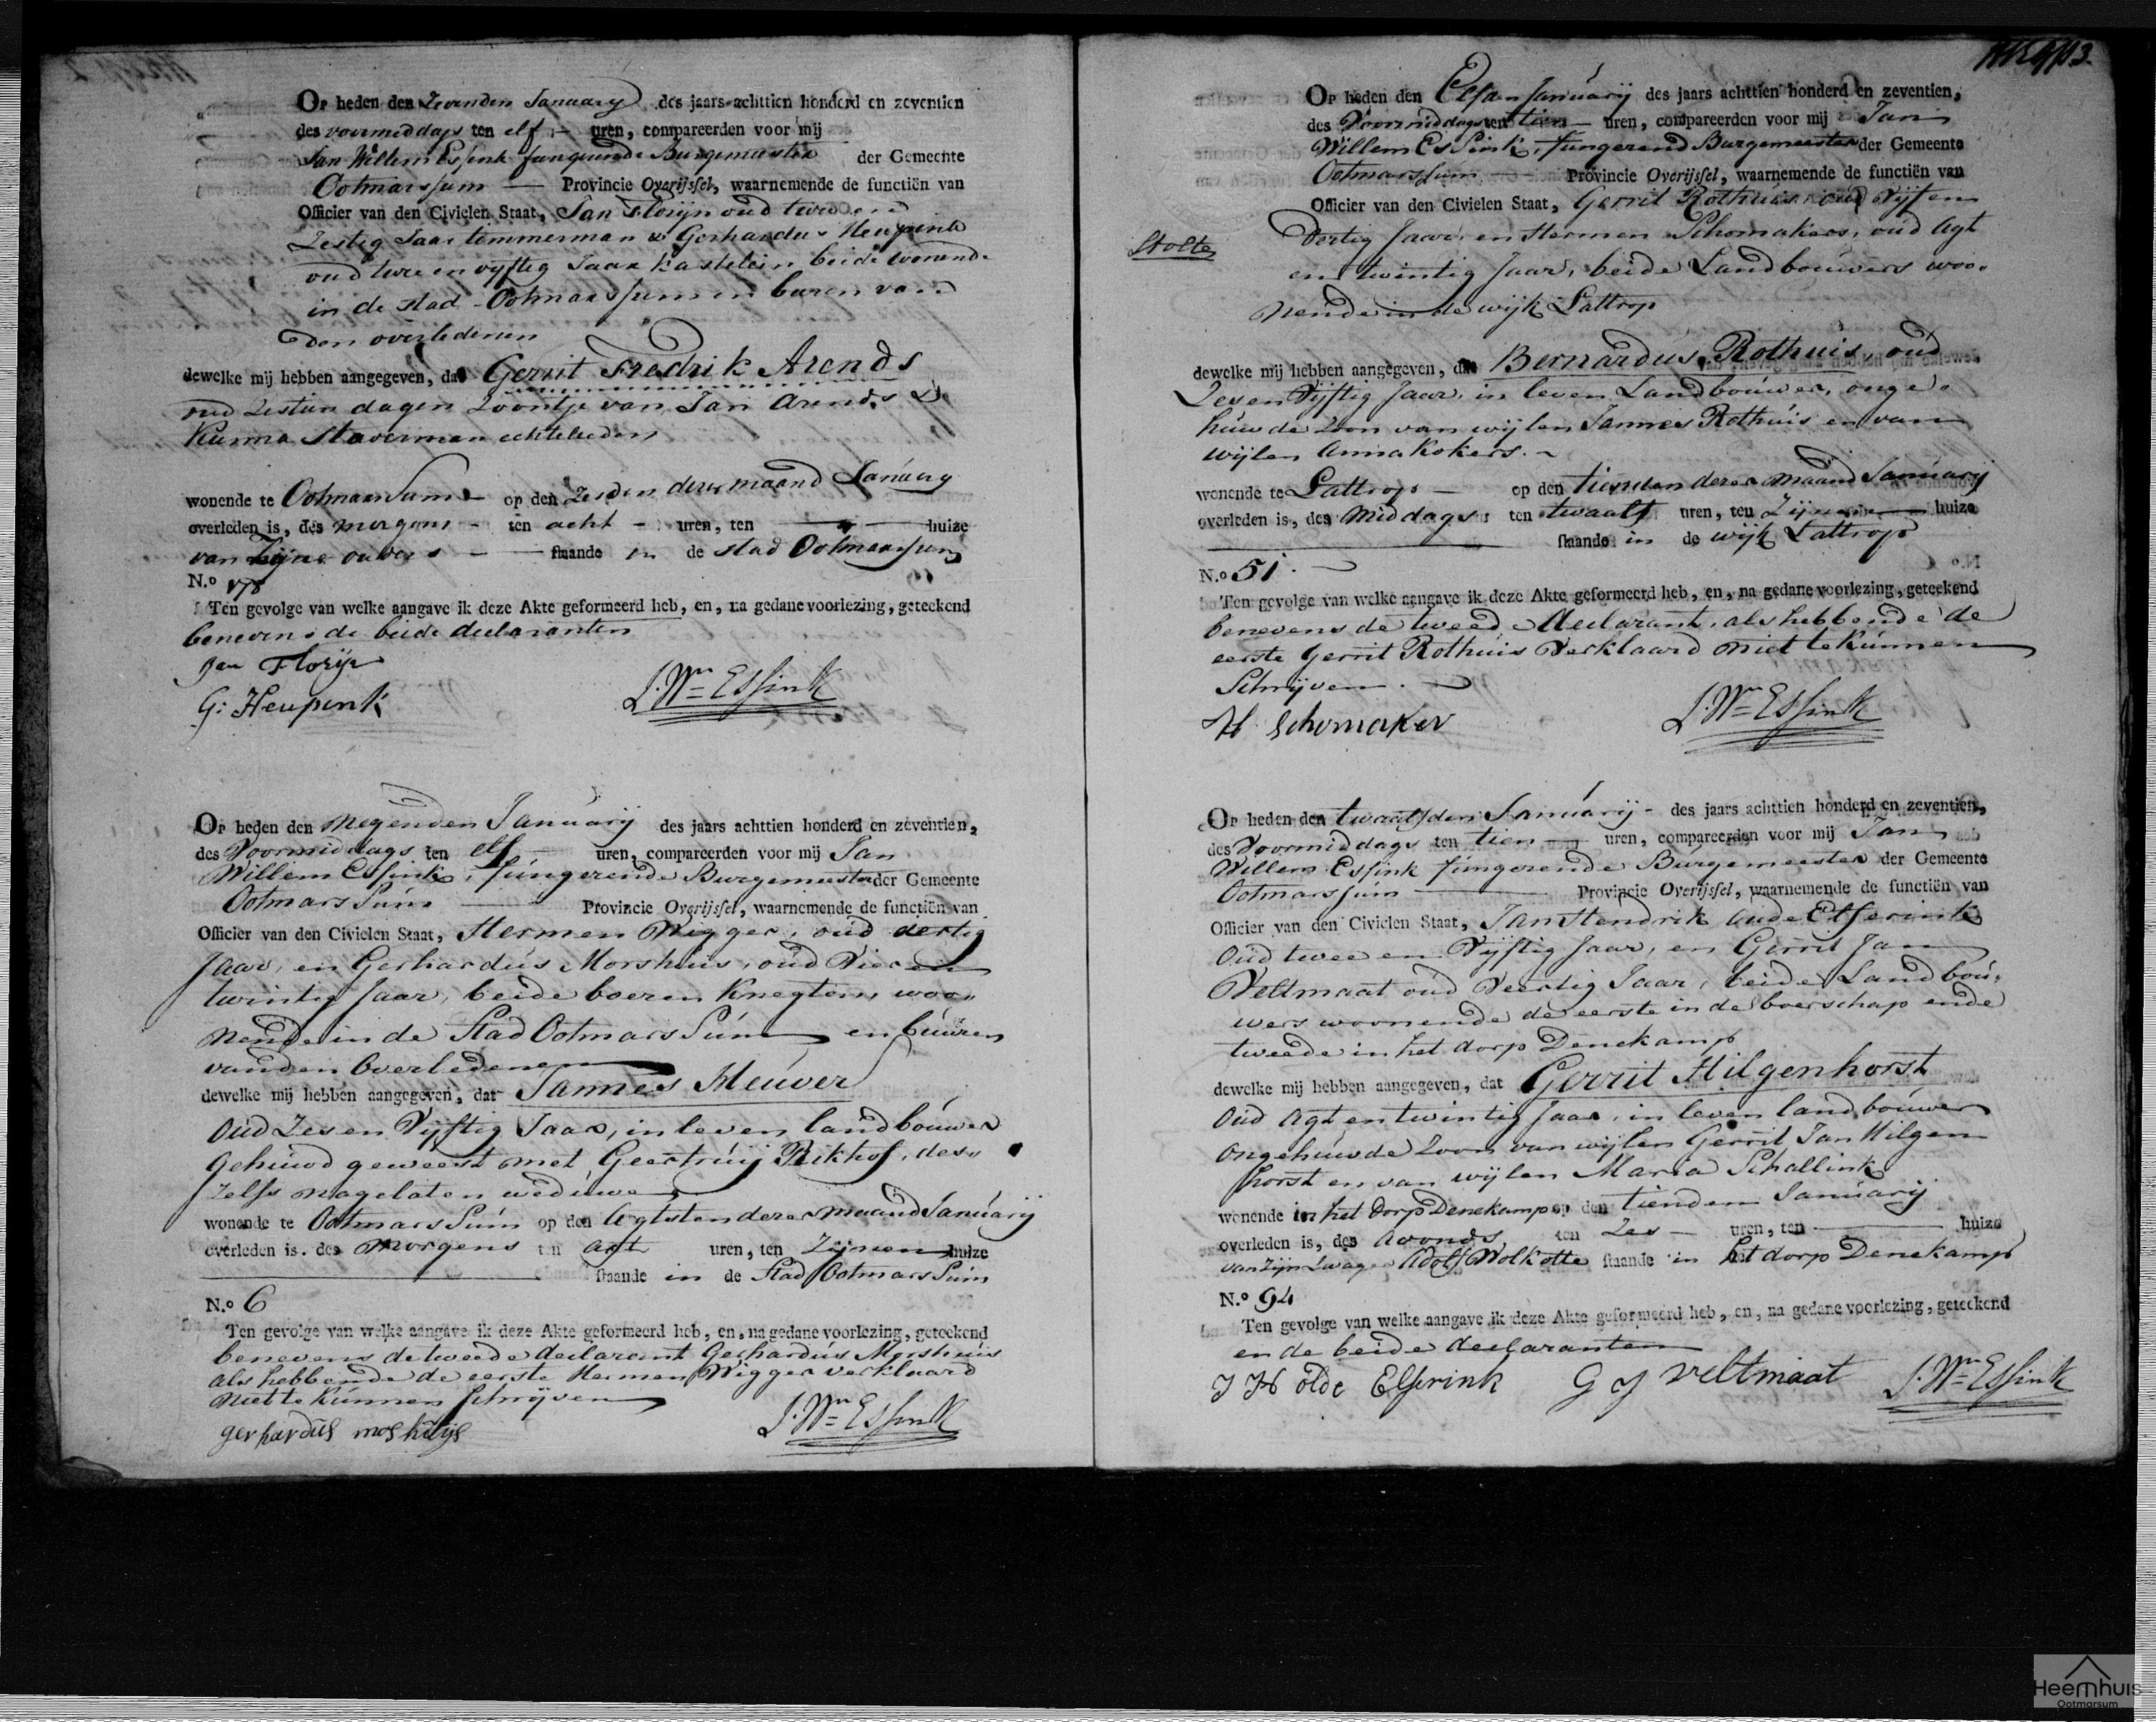 Op heden den Zevenden January des jaars achttien honderd en zeventien
des voormiddags ten elf uren, compareerden voor mij
Jan Willem Essink fungeerende Burgemeester der Gemeente
Ootmarssum Provincie Overijssel, waarnemende de functiën van
Officier van den Civielen Staat, Jan Florijn oud twee en
Zestig Jaar timmerman & Gerhardus Heupink
oud twee en vyftig Jaar Kastelein beide wonende
in de stad Ootmarssum en buren van
den overledenen
dewelke mij hebben aangegeven, dat Gerrit Fredrik Arends
oud Zestien dagen Zoontje van Jan Arends &
Staverman echtelieden
wonende te Ootmarssum op den Zesden dezer maand January
overleden is, des morgens ten acht uren, ten huize
van Zijne ouders staande in de stad Ootmarssum
N.o 178
Ten gevolge van welke aangave ik deze Akte geformeerd heb, en, na gedane voorlezing, geteekend
benevens de beide declaranten
Jan Florijn
G: Heupink
J. Wm Essink
Op heden den Negenden Januarij des jaars achttien honderd en zeventien,
des Voormiddags ten elf uren, compareerden voor mij Jan
Willem Essink, fungerende Burgemeester der Gemeente
Ootmarssum Provincie Overijssel, waarnemende de functiën van
Officier van den Civielen Staat, Hermen Wigger, oud dertig
Jaar, en Gerhardus Morshuis, oud Vier en
twintig Jaar, beide boeren Knegten, woo„
nende in de Stad Ootmarssum en buuren
van den Overledenen
dewelke mij hebben aangegeven, dat Jannes Meuver
Oud Zes en Vijftig Jaar, in leven landbouwer
Gehuwd geweest met Geertruij Rikhof, des„
zelfs nagelaten weduwe
wonende te Ootmarssum op den Agtsten dezer maand Januarij
overleden is, des Morgens ten agt uren, ten Zijnen huize
staande in de Stad Ootmarssum
N.o 6
Ten gevolge van welke aangave ik deze Akte geformeerd heb, en, na gedane voorlezing, geteekend
benevens de tweede declarant Gerhardus Morshuis
als hebbende de eerste Hermen Wigger verklaard
niet te Kunnen schrijven
gerhardus moshuijs
J. Wm Essink
Op heden den Elfden Januarij des jaars achttien honderd en zeventien,
des Voormiddags ten tien uren, compareerden voor mij Jan
Willem Essink, fungerend Burgemeester der Gemeente
Ootmarssum Provincie Overijssel, waarnemende de functiën van
Officier van den Civielen Staat, Gerrit Rothuis oud Vijf en
Dertig Jaar, en Hermen Schomakers, oud Agt
Stolte
en twintig Jaar, beide Landbouwers woo„
nende in de wijk Lattrop
dewelke mij hebben aangegeven, dat Bernardus Rothuis, oud
Zes en Vijftig Jaar, in leven Landbouwer, onge„
huwde Zoon van wijlen Jannes Rothuis en van
wijlen Anna Kokers.
wonende te Lattrop op den tienden dezer maand Januarij
overleden is, des Middags ten twaalf uren, ten Zijnen huize
staande in de wijk Lattrop
N.o 51
Ten gevolge van welke aangave ik deze Akte geformeerd heb, en, na gedane voorlezing, geteekend
benevens de tweede Declarant, als hebbende de
eerste Gerrit Rothuis Verklaard niet te Kunnen
Schrijven.
H Schomaker
J. Wm Essink
Op heden den twaalfden Januarij des jaars achttien honderd en zeventien,
des Voormiddags ten tien uren, compareerden voor mij Jan
Willem Essink fungerende Burgemeester der Gemeente
Ootmarssum Provincie Overijssel, waarnemende de functiën van
Officier van den Civielen Staat, Jan Hendrik Oude Elferink
Oud twee en Vijftig Jaar, en Gerrit Jan
Veltmaat oud Veertig Jaar, beide Landbou„
wers woonende de eerste in de boerschap en de
tweede in het dorp Denekamp
dewelke mij hebben aangegeven, dat Gerrit Hilgenhorst
Oud Agt en twintig Jaar, in leven landbouwer
Ongehuwde Zoon van wijlen Gerrit Jan Hilgen
horst en van wijlen Maria Schallink
wonende in het Dorp Denekamp op den tienden Januarij
overleden is, des Avonds ten Zes uren, ten huize
van Zijn Zwager Adolf Nolkotte staande in het dorp Denekamp
N.o 94
Ten gevolge van welke aangave ik deze Akte geformeerd heb, en, na gedane voorlezing, geteekend
en de beide declaranten
J H olde Elferink G J Veltmaat J. Wm Essink
Heemhuis
Ootmarsum